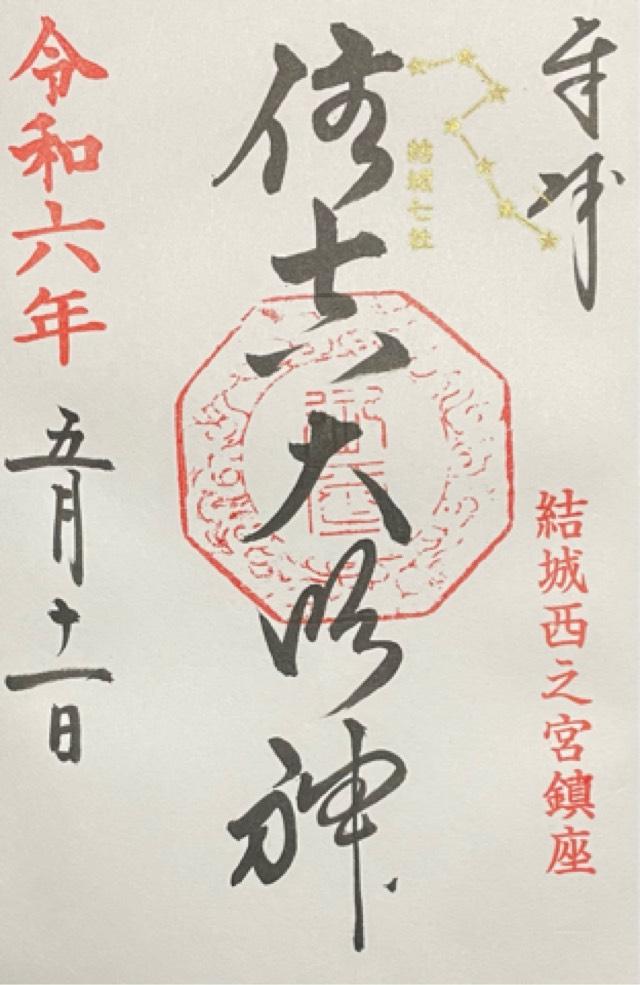 奉拝
結城西之宮鎮座
結城七社
大明神
令和六年
五月十一日